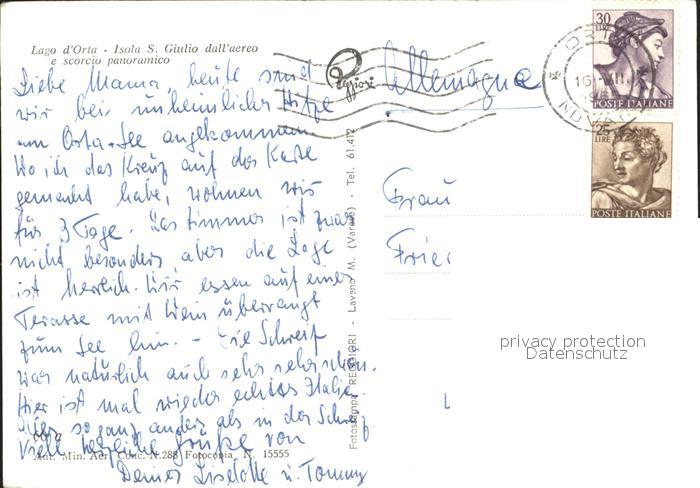 Lago d'Orta - Isola S. Giulio dall'aereo
e scorcio panoramico
Liebe Mama, heute sind
wir bei unheimlicher Hitze
am Orta-See angekommen
Wo ich das Kreuz auf der Karte
gemacht habe, wohnen wir
für 3 Tage. Das Zimmer ist zwar
nicht besonders aber die Lage
ist herrlich. Wir essen auf einer
Terasse mit Wein überrangt
zum See hin. - Die Schweiz
war natürlich auch sehr sehr schön.
Hier ist mal wieder echtes Italien.
so ganz anders als in der Schweiz.
Viele herzliche Grüße von
Deiner Liselotte u. Tommy
Aut. Min. Aer. Conc. N. 288 Fotocopia, N. 15555
Fotostampa REGGIORI - Laveno M. (Varese) - Tel. 61.412
Reggiori
Allemagne
Frau
Frie
30
LIRE
POSTE ITALIANE
25
LIRE
POSTE ITALIANE
ORTA
16 VII
NOVARA
privacy protection
Datenschutz